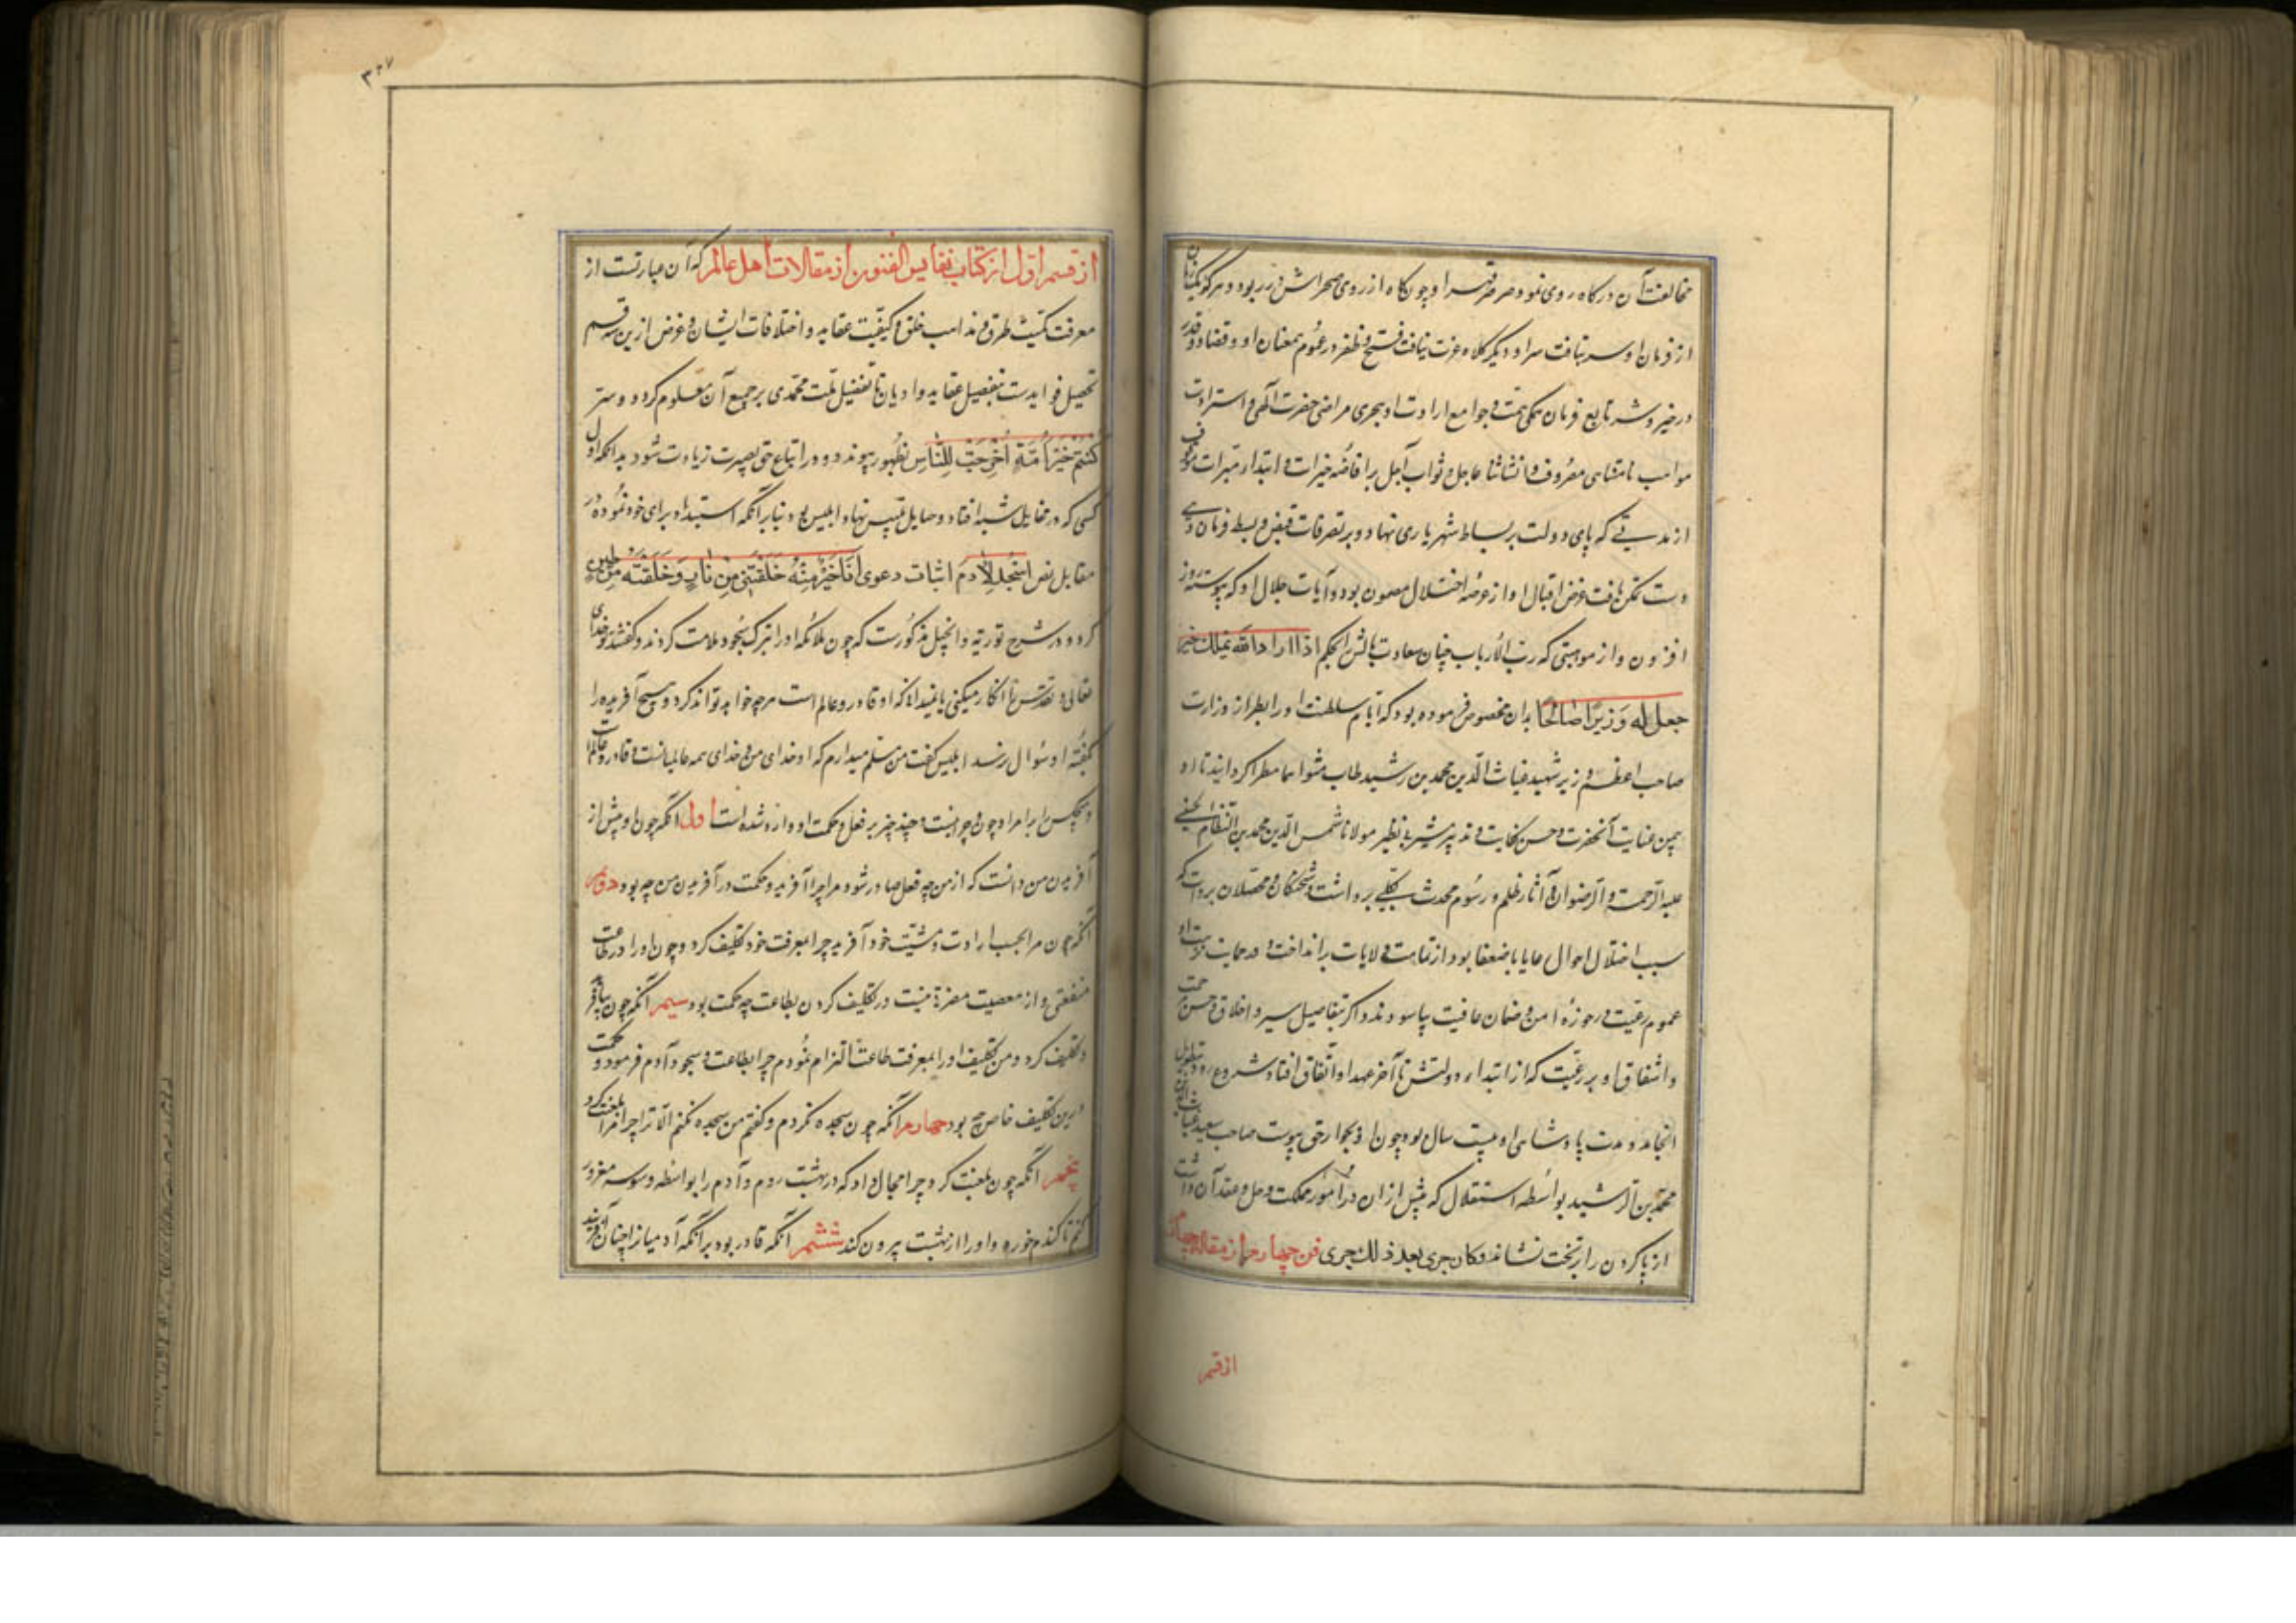 مخالفت آن درگاه روی نمود صرصر قهر او چون کاه از روی صحراش در ربود و هر کو یکزمان
از فرمان او سر بتافت سر او دیگر کلاه عزت نیافت فتح و ظفر در عموم همعنان او و قضا و قدر
در خیر و شر تابع فرمان همگی همت و جوامع ارادت او بتحری مراضی حضرت الهی و استزادت
مواهب نامتناهی مصروف و انتشاء ثناء عاجل و ثواب آجل بر افاضه خیرات و ابتدار مبرات موقوف
از مدتی که پای دولت بر بساط شهریاری نهاد و بر تصرفات قبض و بسط فرمان دهی
دست تمکن یافت عرض اقبال او از عرضه اختلال مصون بود و آیات جلال او که پیوسته روز
افزون و از موهبتی که رب الارباب چنان سعادت یا لش بحکم اذا اراد الله بملک خیرا
جعل له وزیرا صالحا بدان مخصوص فرموده بود که ایام سلطنت او را بطراز وزارت
صاحب اعظم وزیر شهید غیاث الدین محمد بن رشید طاب مثواهما مطرا گردانید تا او
بیمن عنایت آنحضرت و حسن کفایت و تدبیر مشیر بی نظیر مولانا شمس الدین محمد بن النظام الحسینی
علیه الرحمة و الرضوان آثار ظلم و رسوم محدث بکلی برداشت و شحنگان و محصلان بروات که
سبب اختلال احوال رعایا با ضعفا بود از تمامت ولایات برانداخت و در حمایت تربیت او
عموم رعیت در حوزه امن و ضمان عافیت بیاسودند و اگر بتفاصیل سیر و اخلاق و حسن رحمت
و اشفاق او بر رعیت که از ابتداء دولتش تا آخر عهد او اتفاق افتاد شروع رود بتطویل
انجامد و مدت پادشاهی او بیست سال بود چون او بجوار حق پیوست صاحب سعید غیاث الدین
محمد بن الرشید بواسطه استقلال که پیش از ان در امور مملکت و حل و عقد آن داشت
ارپا کرون را بر تخت نشاند و کان جری بعد ذلک جری فن چهارم از مقاله چهارم
از قسم
۳۳۷
از قسم اول از کتاب نفایس الفنون از مقالات اهل عالم که آن عبارتست از
معرفت کمیت طرق و مذاهب خلق و کیفیت عقاید و اختلافات ایشان و غرض از این سه قسم
تحصیل فوایدست بتفصیل عقاید و ادیان تا تفضیل ملت محمدی بر جمیع آن معلوم گردد و سر
کنتم خیر امة اخرجت للناس بظهور پیوندد و در اتباع حق بصیرت زیادت شود بدانکه اول
کسی که در مخایل شبه افتاد و حبایل تلبیس نهاد ابلیس بود بنابر آنکه استبداد برای خود نموده در
مقابل نص اسجد لادم اثبات دعوی انا خیر منه خلقتنی من نار و خلقته من طین
کرد و در شرح توریه و انجیل مذکورست که چون ملائکه او را بترک سجود ملامت کردند و گفتند تو خدای
تعالی و تقدس را انکار میکنی یا نمیدانی که او قادر و عالم است هر چه خواهد تواند کرد و هیچ آفریده را
بگفته او سؤال نرسد ابلیس گفت من مسلم میدارم که او خدای من و خدای همه عالمیانست و قادر و عالم
و هیچکس را بر امر او چون و چرا نیست و چند چیز بر فعل و حکمت او وارد شده است اول آنکه چون او پیش از
آفریدن من دانست که از من چه فعل صادر شود مرا چرا آفرید و حکمت در آفریدن من چه بود دوم
آنکه چون مرا بحسب ارادت و مشیت خود آفرید چرا بمعرفت خود تکلیف کرد و چون او را در طاعت
منفعتی و از معصیت مضرة نیست در تکلیف کردن بطاعت چه حکمت بود سیم آنکه چون بیافرید
و تکلیف کرد و من تکلیف او را بمعرفت طاعت التزام نمودم چرا بطاعت و سجود آدم فرمود و حکمت
درین تکلیف خاص چه بود چهارم آنکه چون سجده نکردم و گفتم من سجده نکنم الا ترا چرا مرا لعنت کرد
پنجم آنکه چون لعنت کرد چرا مجال داد که در بهشت روم و آدم را بواسطه وسوسه مغرور
کنم تا گندم خورد و او را از بهشت بیرون کند ششم آنکه قادر بود بر آنکه آدمیانرا چنان آفریند